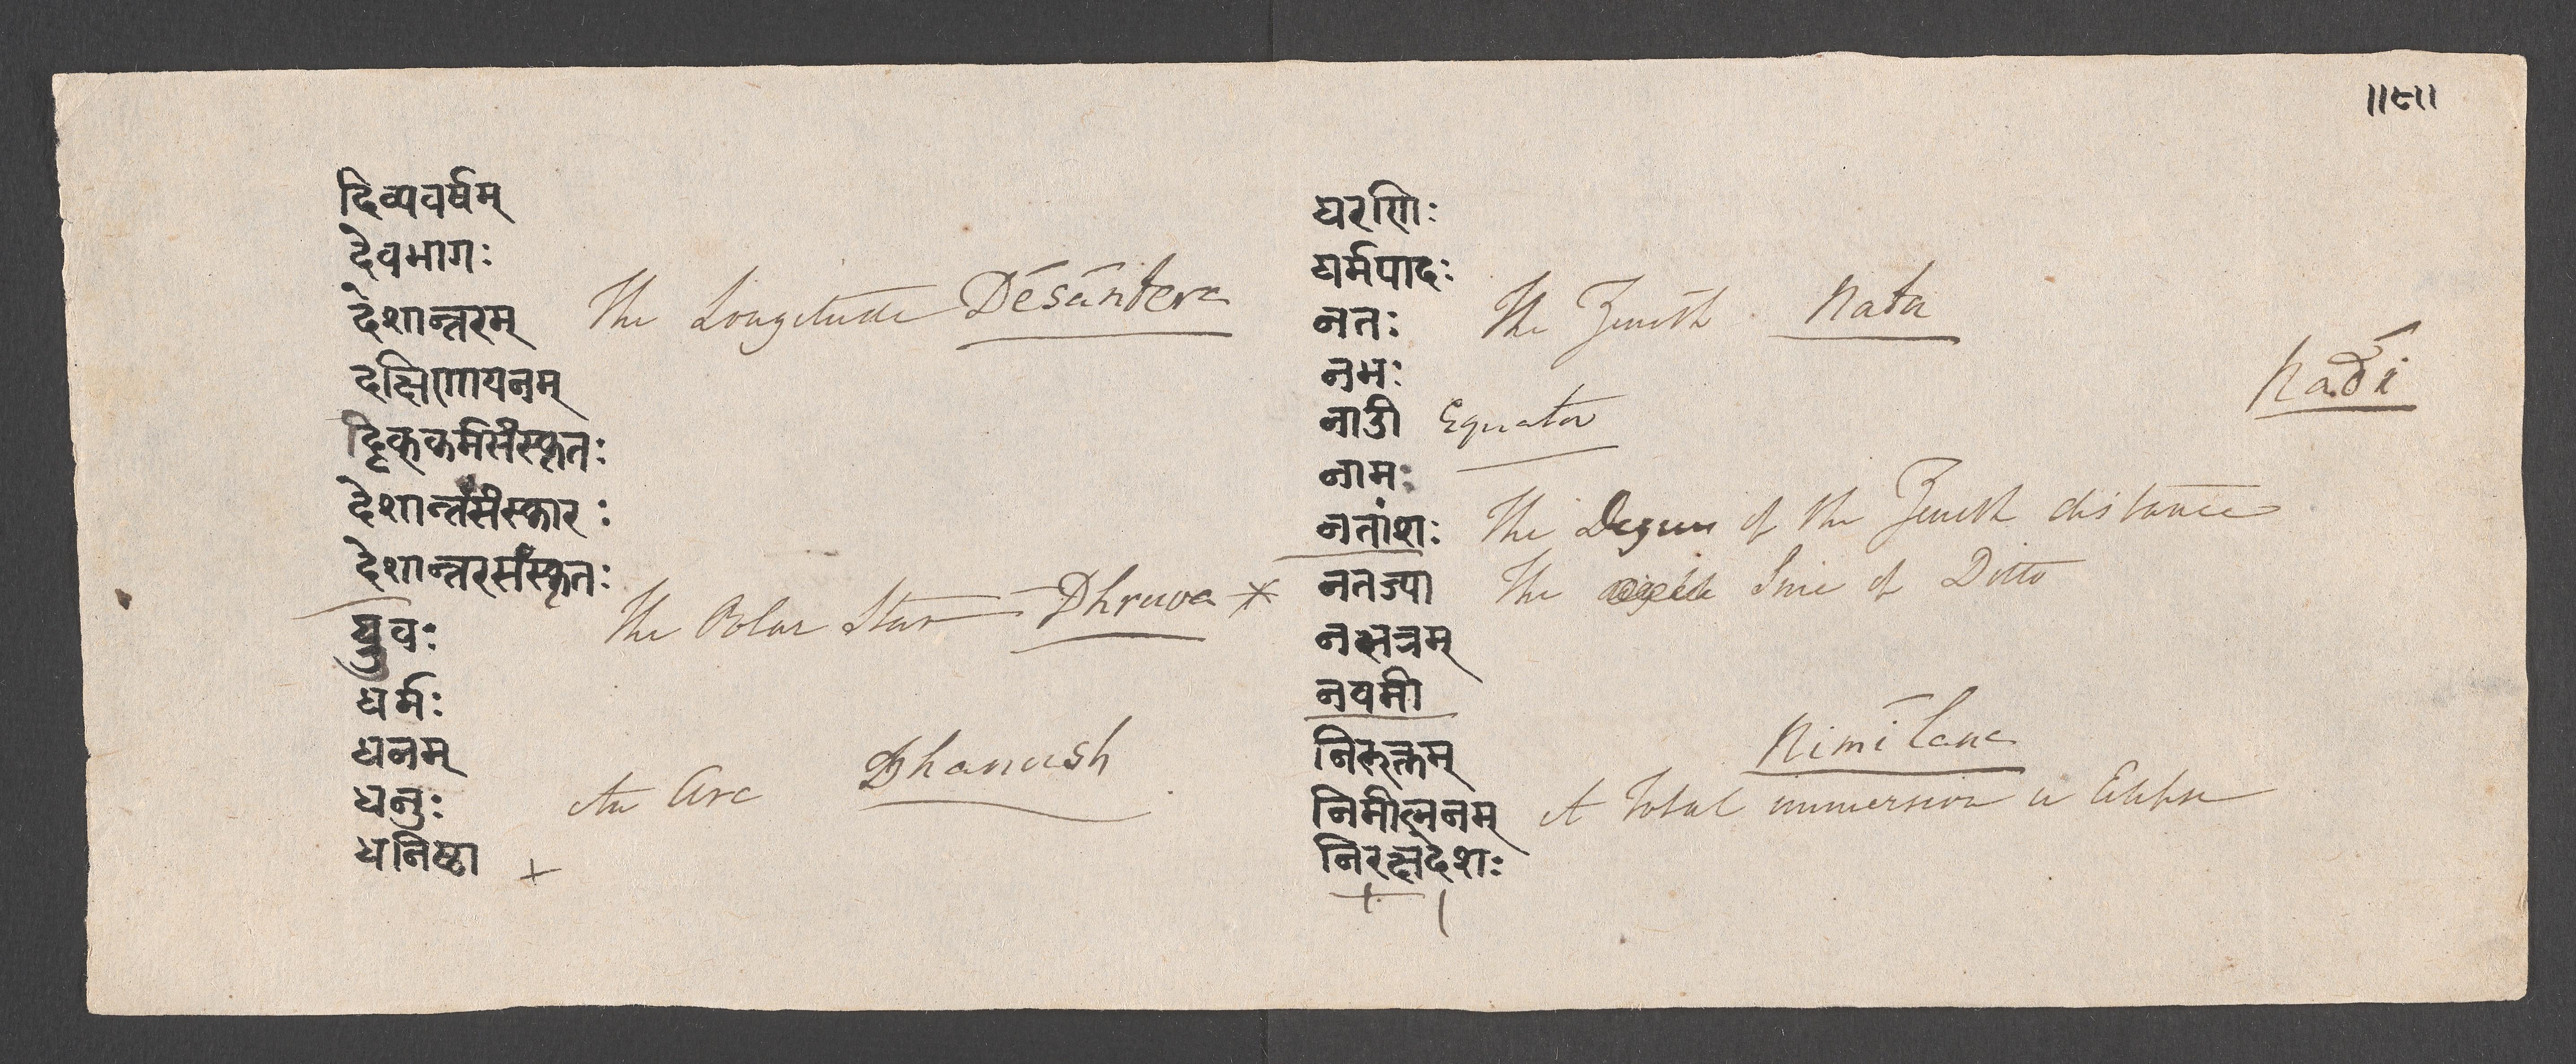 ॥८॥
दिव्यवर्षम्
देवभागः
देशान्तरम् The Longitude Désántera
दक्षिणायनम्
दृक्कर्मसंस्कृतः
देशान्तरसंस्कारः
देशान्तरसंस्कृतः
ध्रुवः The Polar Star Dhruva *
धर्मः
धनम्
धनुः An Arc Dhanush
धनिष्ठा +
धरणिः
धर्मपादः
नतः The Zenith Nata
नभः
नाडी Equator Nadí
नामः
नतांशः The Degree of the Zenith distance
नतज्या The Sine of Ditto
नक्षत्रम्
नवमी
निरुक्तम् Nimílana
निमीलनम् A total immersion in Eclipse
निरक्षदेशः
+